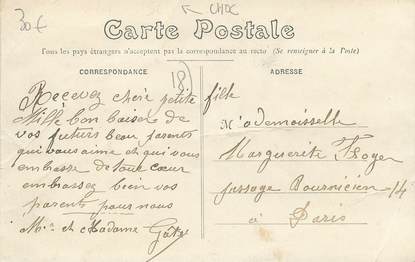 30€
CHOC
Carte Postale
Tous les pays étrangers n'acceptent pas la correspondance au recto (Se renseigner à la Poste)
CORRESPONDANCE
18
Recevez chère petite fille
Mille bon baiser de
vos futurs beau parents
qui vous aime et qui vous
embrasse de tout cœur
embrassez bien vos
parents pour nous
Mr et Madame
ADRESSE
Mademoiselle
Marguerite
passage 14
à Paris